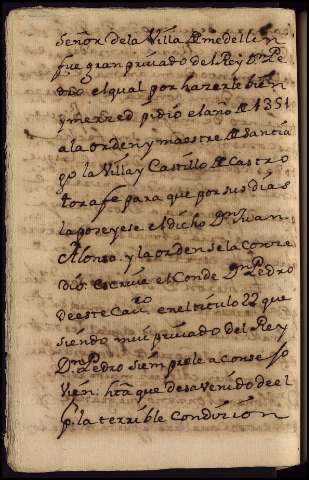 Señor dela Villa de medellin
fue gran privado del Rey Dn. Pe
dro el qual por hazerle bien
y merced pidio el año de 1351
ala orden y maestre de Santia
go la Villa y Castillo de Castro
torafe para que por sus dias
la poseyese el dicho Dn. Iuan
Alonso. y la orden se la conce
dio. escrive el Conde Dn. Pedro
de este Cavro. en el titulo 22 que
siendo mui privado del Rey
Dn. Pedro siempre le aconsejo
vien. hta que desavenido de el
p. la terrible condicion